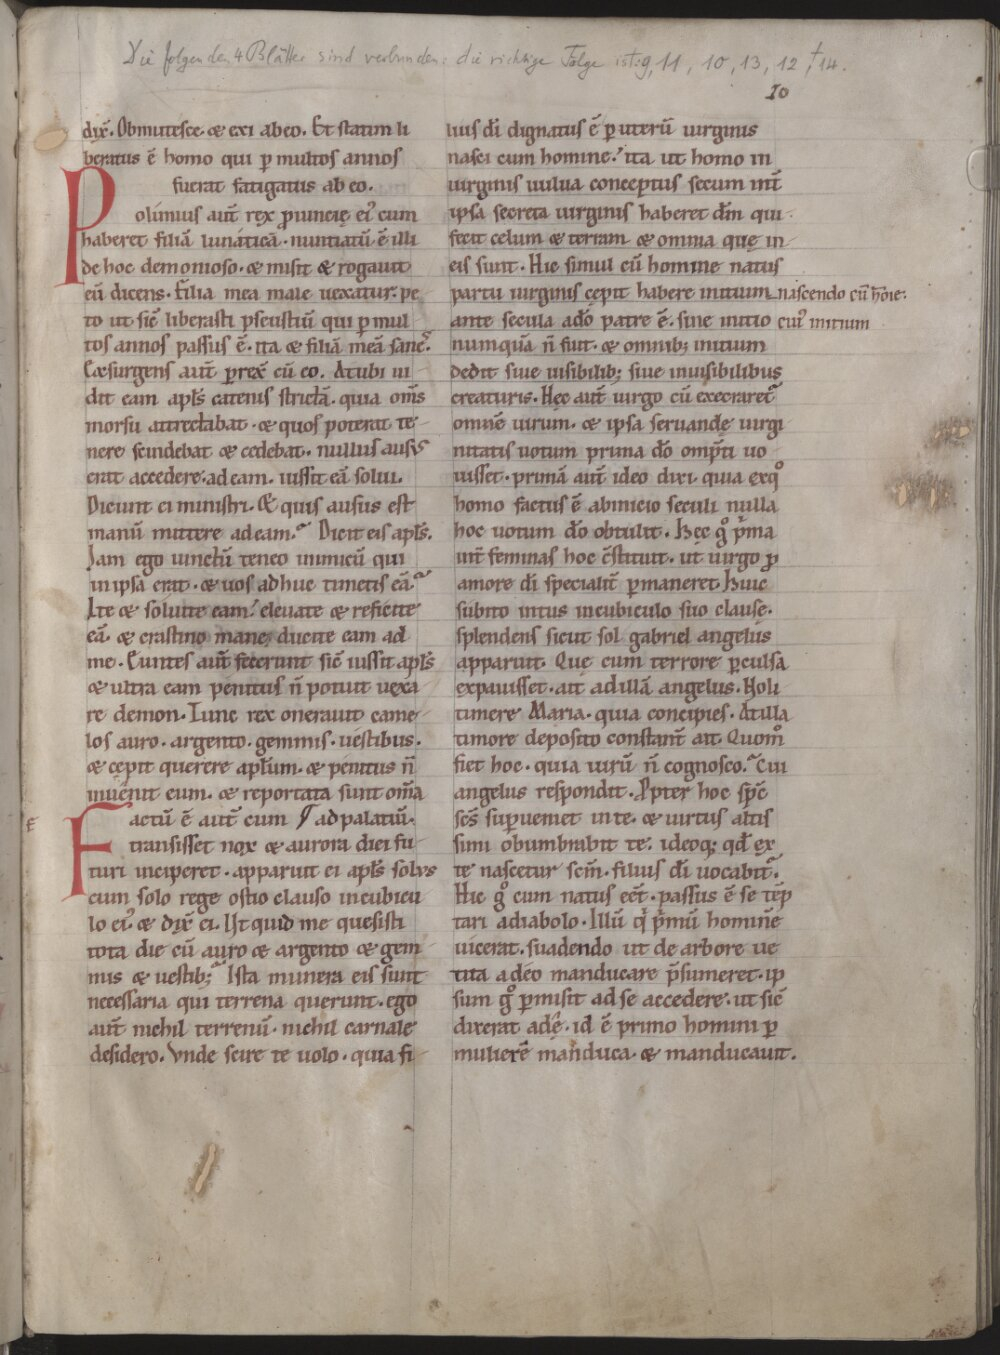 Die folgenden 4 Blätter sind verbunden: die richtige Folge ist: 9, 11, 10, 13, 12, 14.
10
dix̄. Obmutesce. & exi ab eo. Et statim li
beratus ē homo qui p multos annos
fuerat fatigatus ab eo.
Polimius aut̄ rex ꝓuincię ei᾽ cum
haberet filiā lunáticā. nuntiatū ē illi
de hoc demonioso. & misit & rogauit
eū dicens. Filia mea male uexatur. pe
to ut sic̄ liberasti pseustiū qui p mul
tos annos passus ē. ita & filiā meā sanc᾽.
Cūsurgens aut̄ perrex̄ cū eo. At ubi ui
dit eam apl̄s catenis strictā. quia om̄s
morsu attrectabat. & quos poterat te
nere scindebat & cedebat. nullus ausus
erat accedere. ad eam. iussit eā solui.
Dicunt ei ministri. Et quis ausus est
manū mittere ad eam? Dicit eis apl̄s.
Jam ego uinctū teneo inimicū qui
in ipsa erat. & uos adhuc timetis eā?
Ite & soluite eam. eleuate & reficite
eā. & crastino mane ducite eam ad
me. Euntes aut̄ fecerunt sic̄ iussit apl̄s
& ultra eam pénitus n̄ potuit uexa
re demon. Tunc rex onerauit came
los auro. argento. gemmis. uéstibus.
& cępit querere apl̄um. & pénitus n̄
inuénit eum. & reportata sunt om̄a
Factū ē aut̄ cum ad palatiū.
transisset nox & aurora diei fu
turi inciperet. apparuit ei apl̄s solus
cum solo rege ostio clauso in cubicu
lo ei᾽. & dix̄ ei. Ut quid me quesisti
tota die cū auro & argento & gem
mis & uestib;? Ista munera eis sunt
necessaria qui terrena querunt. ego
aut̄ nichil terrenū. nichil carnale
desidero. Vnde scire te uolo. quia fi
lius dī dignatus ē p uterū uirginis
nasci cum homine. ita ut homo in
uirginis uulua conceptus secum int̄
ipsa secreta uirginis haberet dn̄m qui
fecit celum & terram & omnia quę in
eis sunt. Hic simul cū homine natus
partu uirginis cępit habere initium nascendo cū hōie.
ante secula a dō patre ē. sine initio cui᾽ initium
numquā n̄ fuit. & omnib; initium
dedit siue uisibilib; siue inuisibilibus
creaturis. Hęc aut̄ uirgo cū execraret᾽
omnē uirum. & ipsa seruandę uirgi
nitatis uotum prima dō omp̄ti uo
uisset. primā aut̄ ideo dixi. quia ex qͦ
homo factus ē ab inicio seculi nulla
hoc uotum dō obtulit. Hęc gͦ p̄ma
int̄ feminas hoc c̄stituit. ut uirgo ꝓ
amore dī specialit̄ pmaneret. Huic
subito intus in cubiculo suo clausę.
splendens sicut sol gabriel angelus
apparuit. Que cum terrore pculsa
expauisset. ait ad illā angelus. Noli
timere Maria. quia concipies. At illa
timore deposito constant̄ ait. Quomͦ
fiet hoc. quia uirū n̄ cognosco? Cui
angelus respondit. Ꝓpter hoc sp̄c
sc̄s supueniet in te. & uirtus altis
simi obumbrabit te. ideoq; qđ ex
te nascetur sc̄m. filius dī uocabit᾽.
Hic gͦ cum natus eēt. passus ē se tēp
tari a diabolo. Illū qͥ p̄mū hominē
uicerat. suadendo ut de arbore ue
tita a déo manducare p̄sumeret. ip
sum gͦ pmisit ad se accedere. ut sic̄
dixerat adę. id ē primo homini p
mulierē manduca. & manducauit.